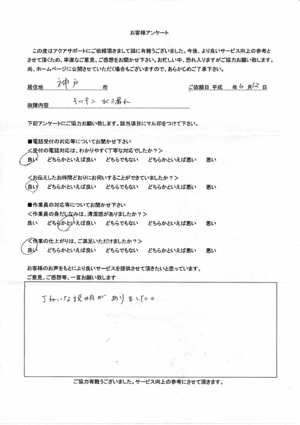 お客様アンケート
この度はアクアサポートにご依頼頂きまして誠に有難うございました。今後、より良いサービス向上の参考と
させて頂くため、率直なご意見、ご感想をお聞かせ下さい。お忙しい中、恐れ入りますがご協力お願い致します。
尚、ホームページに公開させていただく場合もございますので、あらかじめご了承下さい。
居住地 神戸 市 ご依頼日 平成 年 6 月 12 日
故障内容 水漏れ
下記アンケートにご協力お願い致します。該当項目にマル印をつけて下さい。
■電話受付の対応等についてお聞かせ下さい
<受付の電話対応は、わかりやすく丁寧な対応でしたか?>
良い どちらかといえば良い どちらでもない どちらかといえば悪い 悪い
<お伝えしたお時間どおりにお伺いすることができていましたか?>
良い どちらかといえば良い どちらでもない どちらかといえば悪い 悪い
■作業員の対応等についてお聞かせ下さい
<作業員の身だしなみは、清潔感がありましたか?>
良い どちらかといえば良い どちらでもない どちらかといえば悪い 悪い
<作業の仕上がりは、ご満足いただけましたか?>
良い どちらかといえば良い どちらでもない どちらかといえば悪い 悪い
お客様のお声をもとにより良いサービスを提供させて頂きたいと思っています。
ご意見、ご感想等、一言お願い致します
ていねいな説明がありました。
ご協力有難うございました。サービス向上の参考にさせて頂きます。